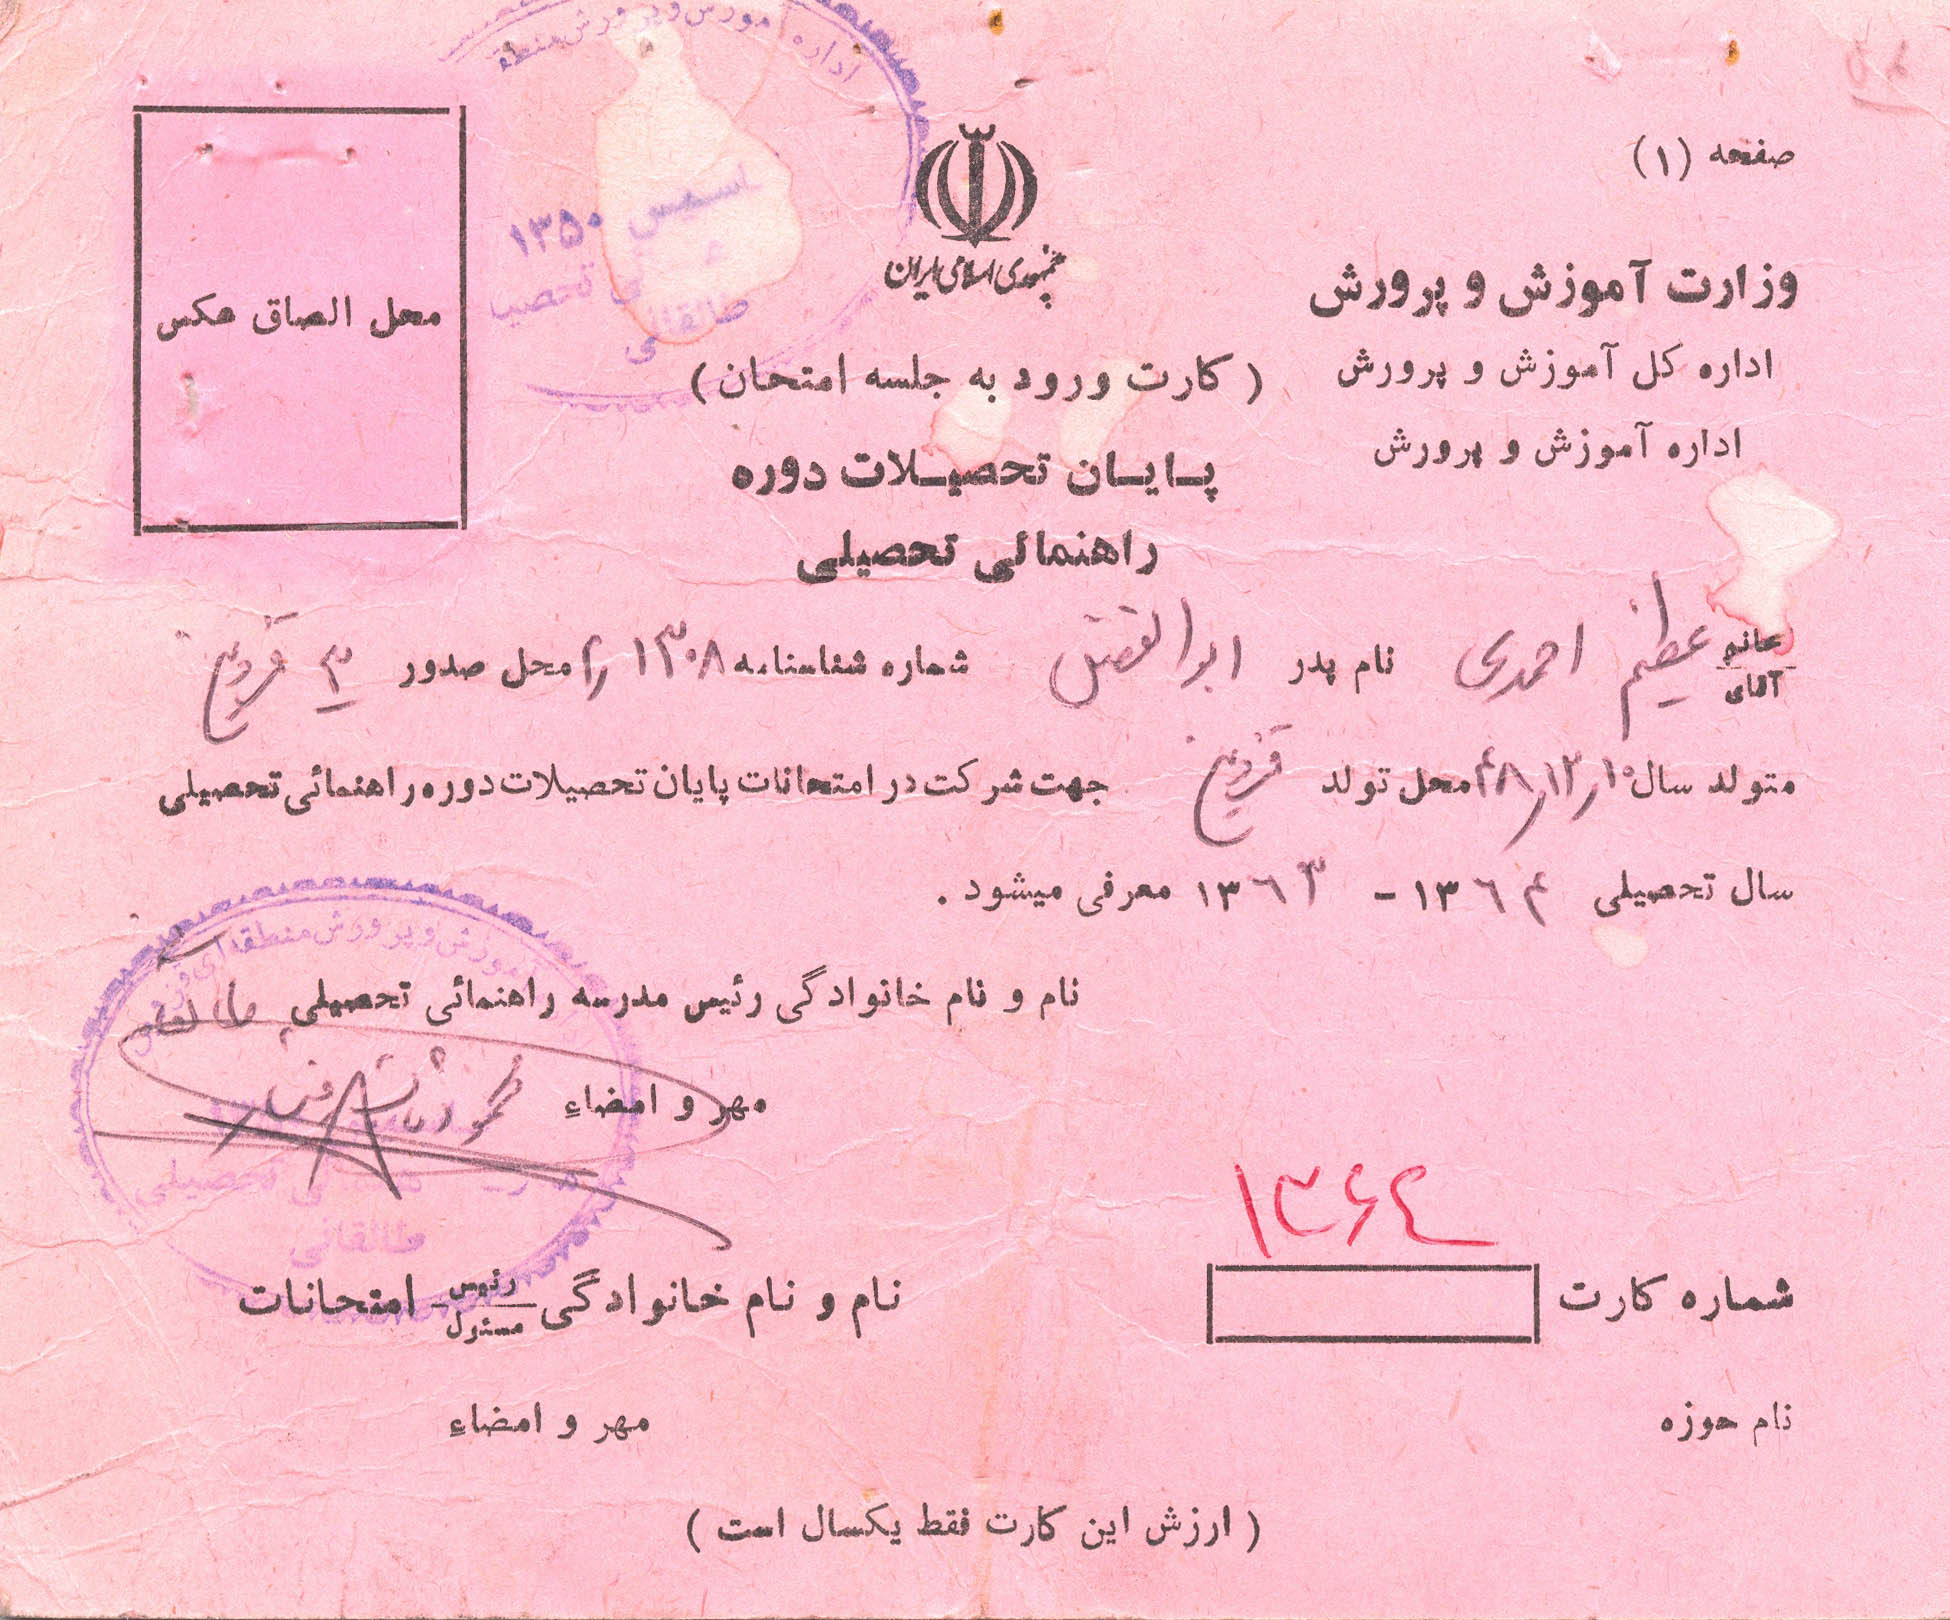 صفحه (۱)
جمهوری اسلامی ایران
وزارت آموزش و پرورش
اداره کل آموزش و پرورش
اداره آموزش و پرورش
(کارت ورود به جلسه امتحان)
پایان تحصیلات دوره
راهنمائی تحصیلی
محل الصاق عکس
اداره آموزش و پرورش منطقه
تأسیس ۱۳۵۰
طالقانی
خانم
آقای
عظیم احمدی نام پدر ابوالفضل شماره شناسنامه ۱۳۰۸ محل صدور ۳ قزوین
متولد سال ۴۸/۱۲/۱۰ محل تولد قزوین جهت شرکت در امتحانات پایان تحصیلات دوره راهنمائی تحصیلی
سال تحصیلی ۱۳۶۴ - ۱۳۶۳ معرفی میشود.
نام و نام خانوادگی رئیس مدرسه راهنمائی تحصیلی طالقانی
مهر و امضاء محمود
آموزش و پرورش منطقه ای قزوین
تحصیلی
طالقانی
۱۳۶۴
شماره کارت
نام و نام خانوادگی رئیس / مسئول امتحانات
نام حوزه
مهر و امضاء
(ارزش این کارت فقط یکسال است)